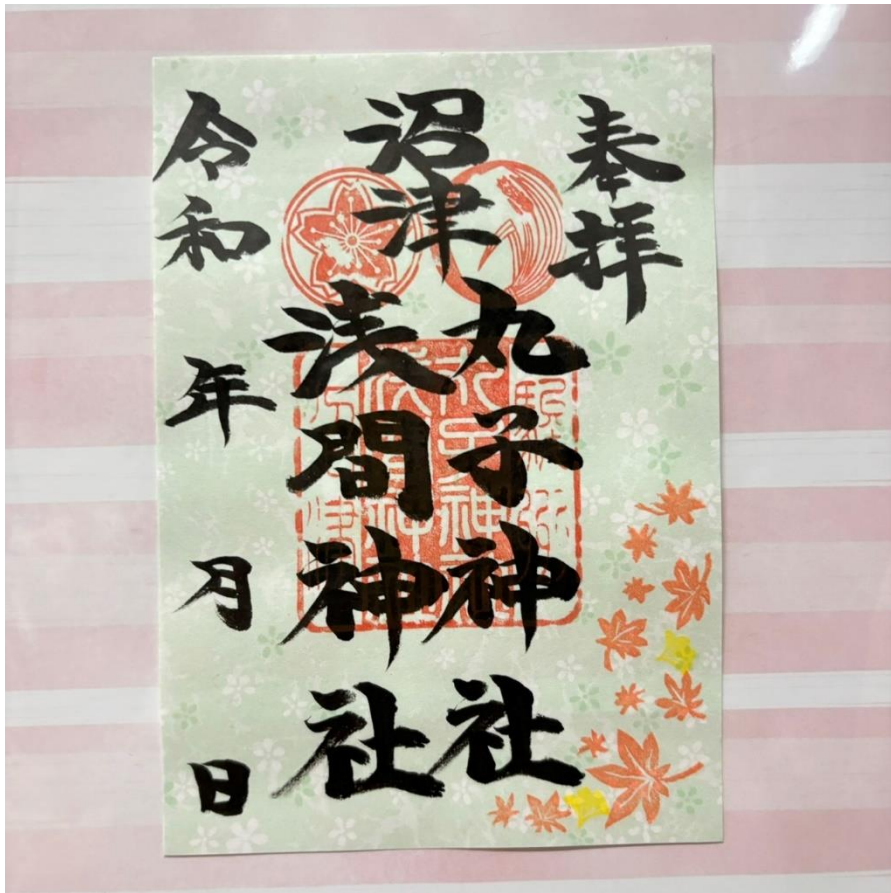 奉拝
沼津
丸子神社
浅間神社
令和 年 月 日